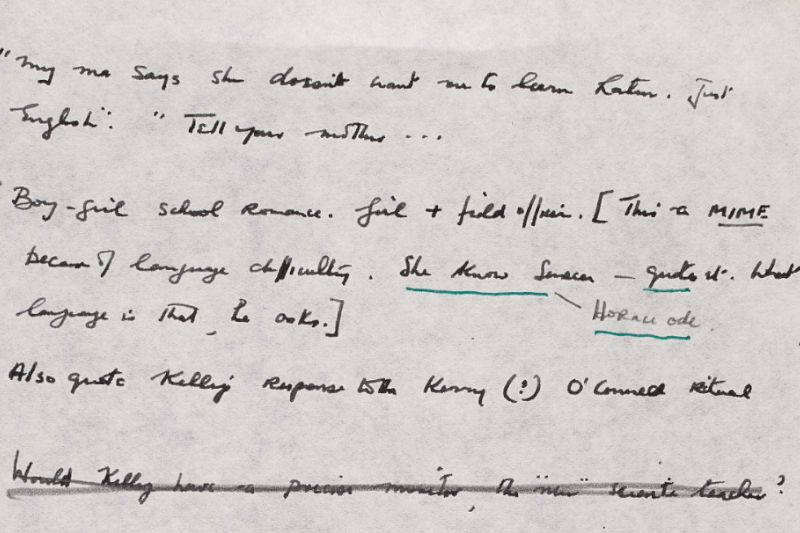 "My ma says she doesn't want me to learn Latin. Just
English". "Tell your mother ...
Boy-girl school romance. Girl + field officer. [This a MIME
because of language difficulty. She knows Seneca — quotes it. What
language is that, he asks.]
Horace ode.
Also quote Kelly's response to the Kerry (?) O'Connell ritual
Would Kelly have a precise monitor, the "new" science teacher?